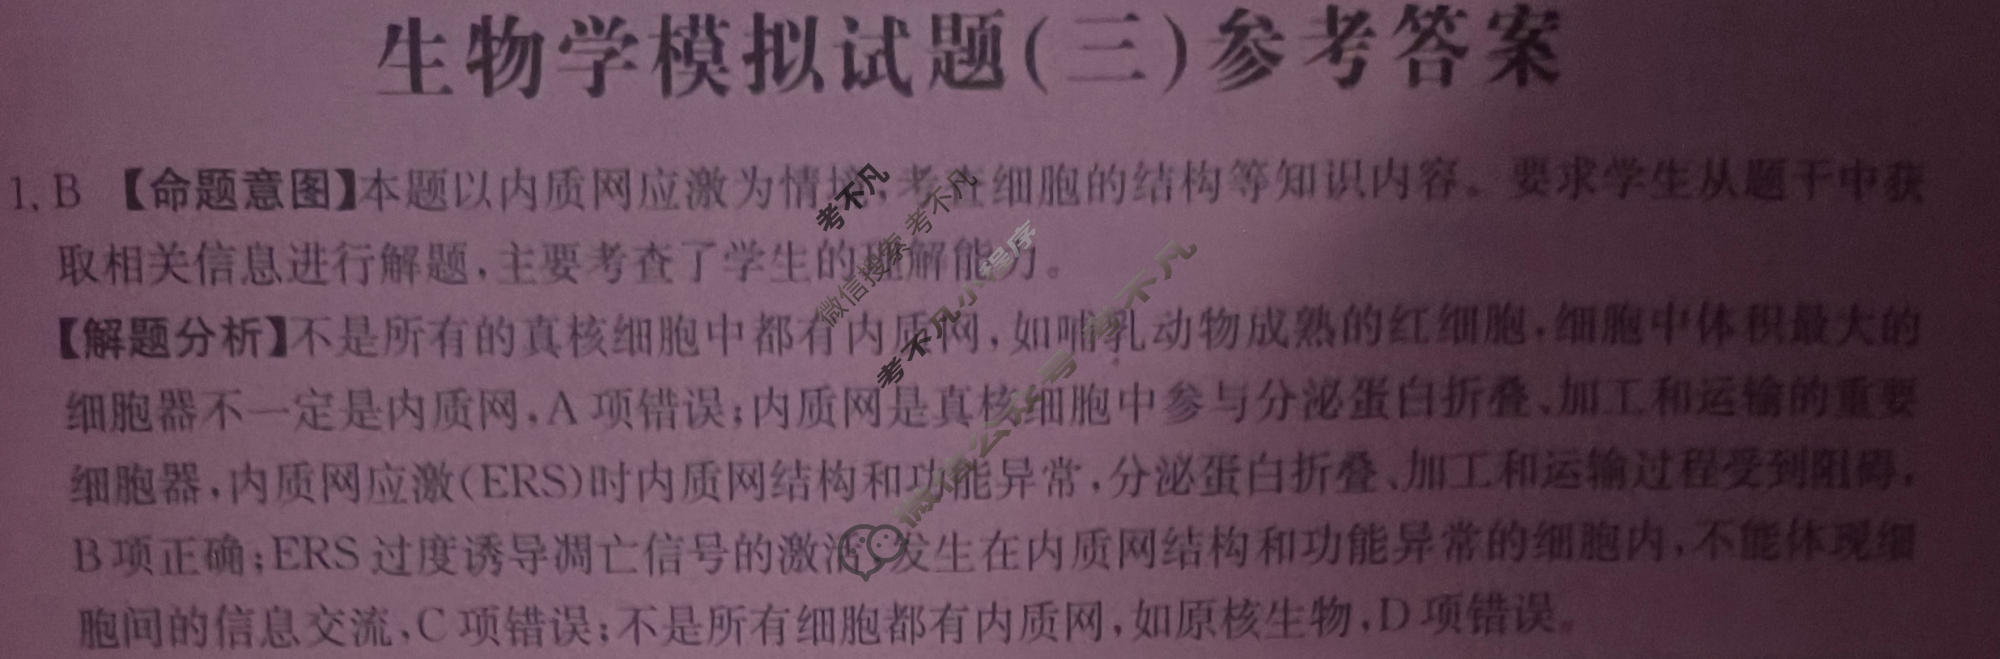 生物学模拟试题(三)参考答案
1. B 【命题意图】本题以内质网应激为情境,考查细胞的结构等知识内容。要求学生从题干中获
取相关信息进行解题,主要考查了学生的理解能力。
【解题分析】不是所有的真核细胞中都有内质网,如哺乳动物成熟的红细胞,细胞中体积最大的
细胞器不一定是内质网,A项错误;内质网是真核细胞中参与分泌蛋白折叠、加工和运输的重要
细胞器,内质网应激(ERS)时内质网结构和功能异常,分泌蛋白折叠、加工和运输过程受到阻碍,
B项正确;ERS过度诱导凋亡信号的激活,发生在内质网结构和功能异常的细胞内,不能体现细
胞间的信息交流,C项错误;不是所有细胞都有内质网,如原核生物,D项错误。
考不凡
微信搜索 考不凡
考不凡小程序
微信公众号 考不凡